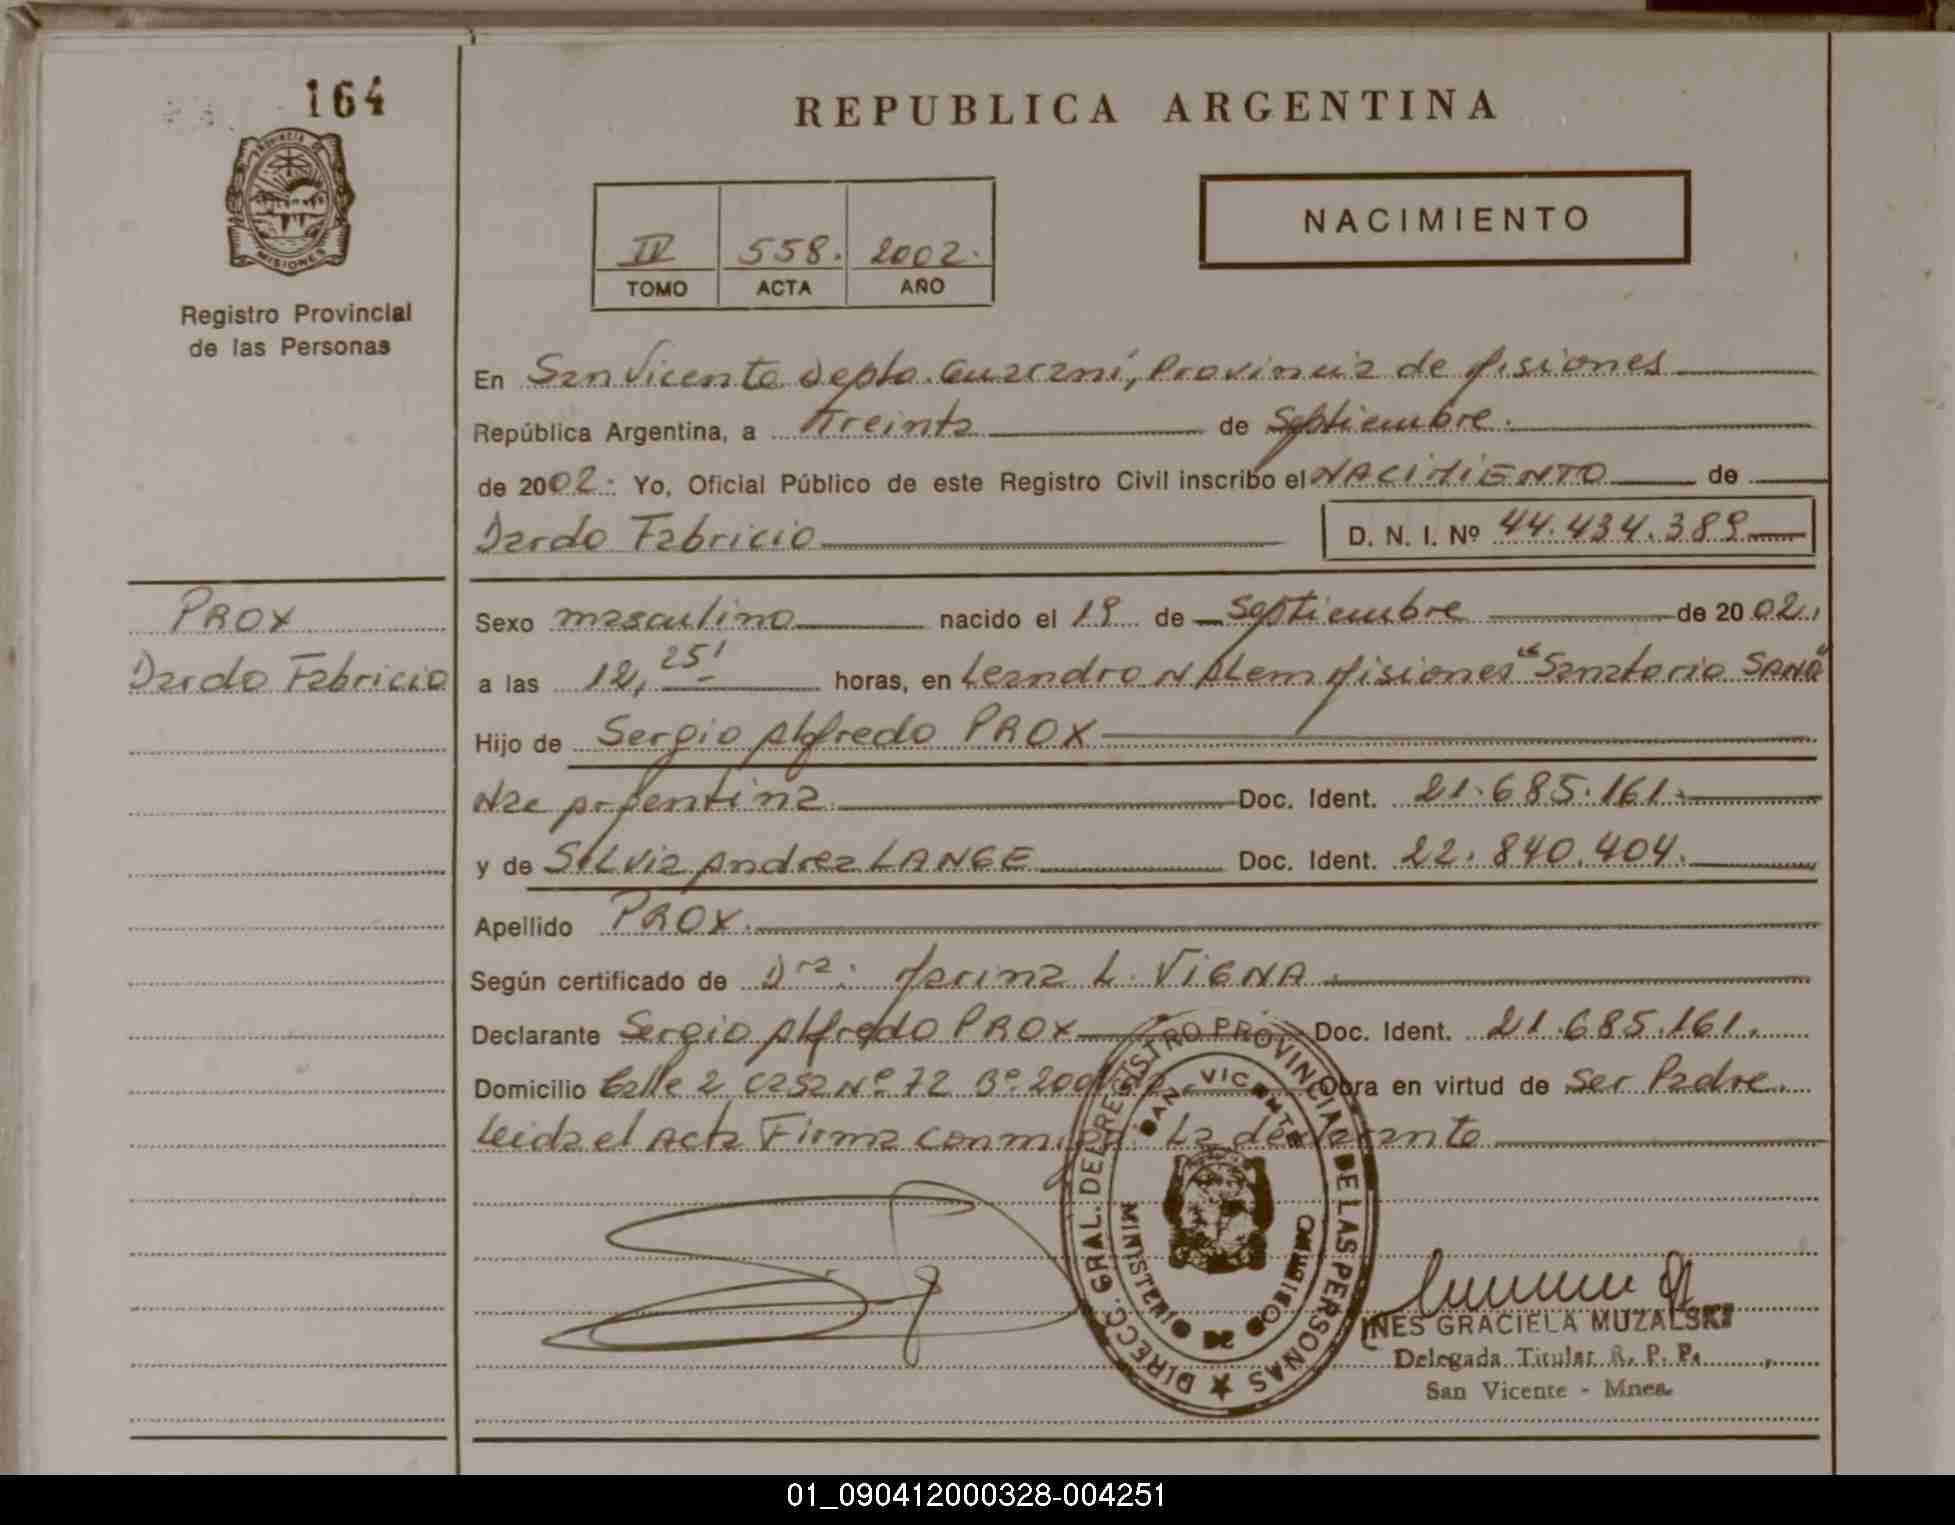 164
PROVINCIA DE
MISIONES
Registro Provincial
de las Personas
REPUBLICA ARGENTINA
IV 558. 2002.
TOMO ACTA AÑO
NACIMIENTO
En San Vicente Depto. Guaraní, Provincia de Misiones
República Argentina, a Treinta de Septiembre.
de 2002. Yo, Oficial Público de este Registro Civil inscribo el NACIMIENTO de
Dardo Fabricio D. N. I. Nº 44.434.389
PROX
Dardo Fabricio
Sexo masculino nacido el 19 de Septiembre de 2002.
a las 12,25' horas, en Leandro N ALem Misiones "Sanatorio SANA"
Hijo de Sergio Alfredo PROX
Nac Argentina Doc. Ident. 21.685.161.
y de SiLvia Andrea LANGE Doc. Ident. 22.840.404.
Apellido PROX.
Según certificado de Dra. Marina L. ViGNA.
Declarante Sergio Alfredo PROX Doc. Ident. 21.685.161.
Domicilio Calle 2 casa Nº 72 Bº 200 Obra en virtud de Ser Padre.
Leida el Acta Firma conmigo La declarante
DIRECC. GRAL. DEL REGISTRO PROVINCIAL DE LAS PERSONAS
SAN VICENTE
MINISTERIO DE GOBIERNO
INES GRACIELA MUZALSKI
Delegada Titular R. P. P.
San Vicente - Mnes.
01_090412000328-004251